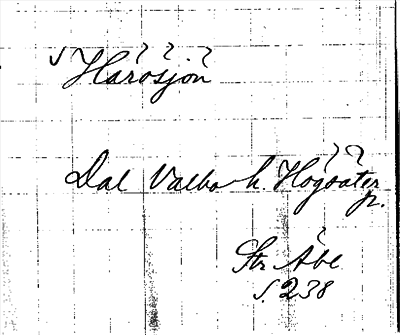 Harosjön
Dal Valbo h. Högsäter
Str Åbl
s. 238